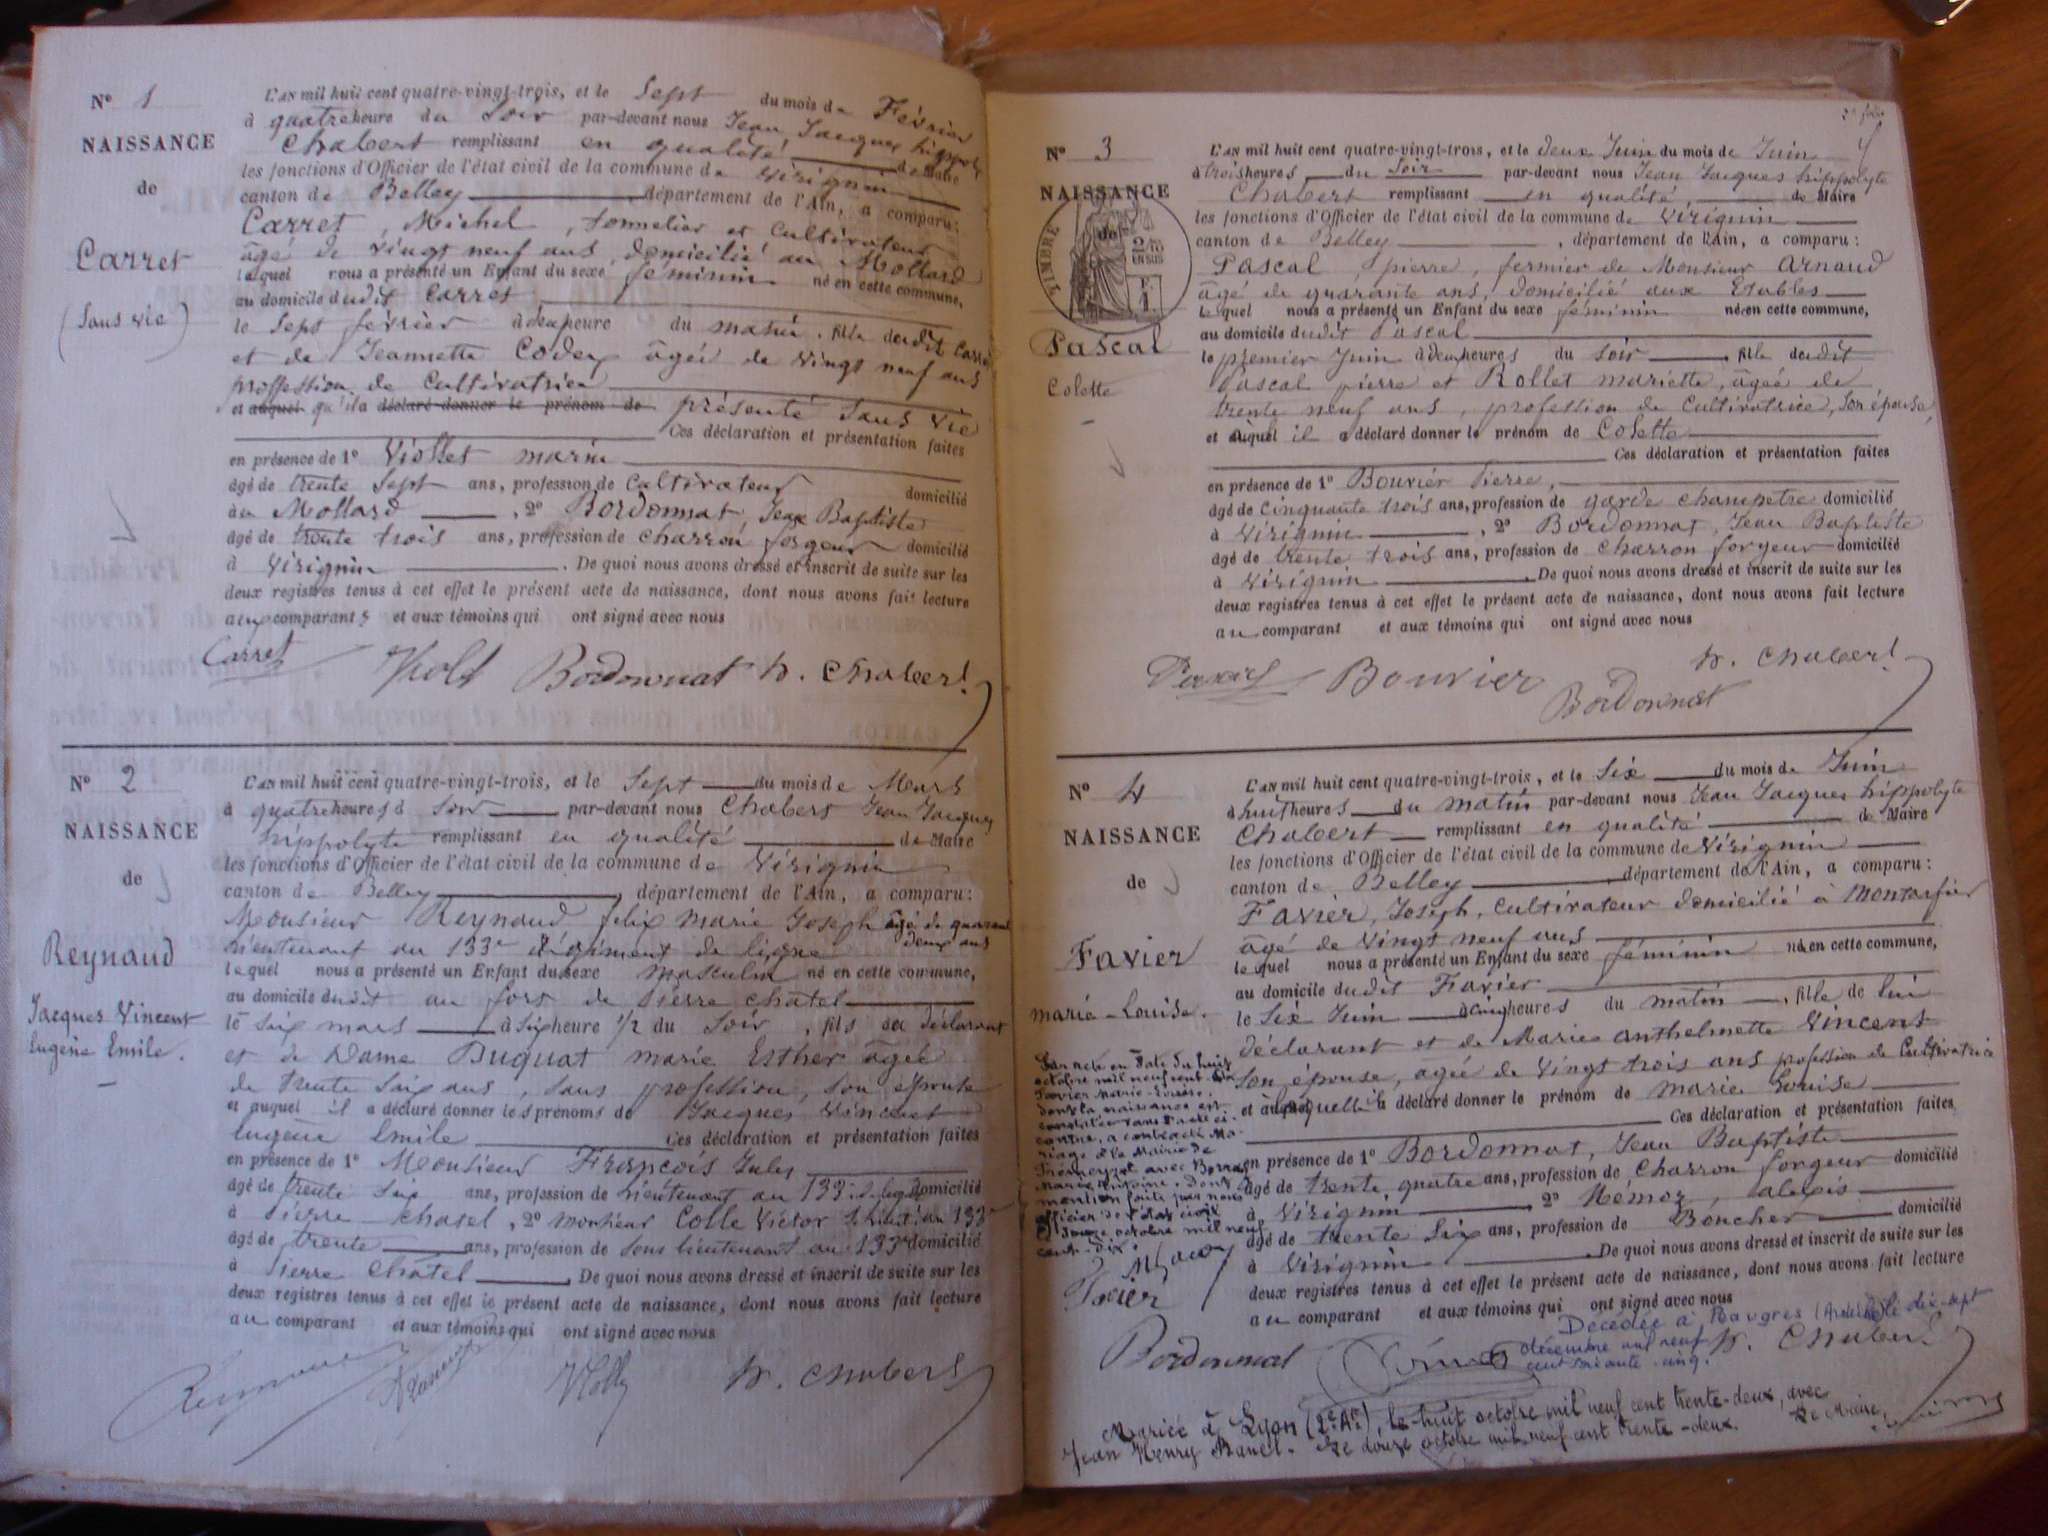 N° 1
NAISSANCE
de
Carret
(Sans vie)
L'AN mil huit cent quatre-vingt-trois, et le Sept du mois de Février
à quatre heure du Soir par-devant nous Jean Jacques hippolyte
Chabert remplissant en qualité de Maire
les fonctions d'Officier de l'état civil de la commune de Virignin
canton de Belley, département de l'Ain, a comparu:
Carret, Michel, tonnelier et Cultivateur
âgé de vingt neuf ans, domicilié au Mollard
lequel nous a présenté un Enfant du sexe féminin né en cette commune,
au domicile dudit Carret
le Sept février à deux heure du matin, fille dudit Carret
et de Jeannette Coder âgée de vingt neuf ans
proffession de Cultivatrice
et auquel qu'il a déclaré donner le prénom de présenté Sans Vie
Ces déclaration et présentation faites
en présence de 1° Viollet marin
âgé de trente Sept ans, profession de Cultivateur domicilié
au Mollard, 2° Bordonnat, Jean Baptiste
âgé de trente trois ans, profession de charron forgeur domicilié
à Virignin. De quoi nous avons dressé et inscrit de suite sur les
deux registres tenus à cet effet le présent acte de naissance, dont nous avons fait lecture
aux comparants et aux témoins qui ont signé avec nous
Carret Bordonnat h. Chabert
N° 2
NAISSANCE
de
Reynaud
Jacques Vincent
Eugène Emile.
L'AN mil huit cent quatre-vingt-trois, et le Sept du mois de Mars
à quatre heures du Soir par-devant nous Chabert Jean Jacques
hippolyte remplissant en qualité de Maire
les fonctions d'Officier de l'état civil de la commune de Virignin
canton de Belley, département de l'Ain, a comparu:
Monsieur Reynaud felix marie Joseph âgé de quarante
deux ans
lieutenant au 133e Régiment de ligne
lequel nous a présenté un Enfant du sexe masculin né en cette commune,
au domicile dudit au fort de Pierre chatel
le Six mars à Six heure 1/2 du Soir, fils du déclarant
et de Dame Duquat marie Esther âgée
de trente Six ans, sans profession, son épouse
et auquel il a déclaré donner les prénoms de Jacques Vincent
Eugène Emile Ces déclaration et présentation faites
en présence de 1° Monsieur François Jules
âgé de trente Six ans, profession de lieutenant au 133 de ligne domicilié
à Pierre-chatel, 2° monsieur Colle Victor S. lieut. au 133e
âgé de trente ans, profession de Sous lieutenant au 133e domicilié
à Pierre Chatel. De quoi nous avons dressé et inscrit de suite sur les
deux registres tenus à cet effet le présent acte de naissance, dont nous avons fait lecture
au comparant et aux témoins qui ont signé avec nous
h. Chabert
N° 3
NAISSANCE
de
TIMBRE
Pascal
Colette
L'AN mil huit cent quatre-vingt-trois, et le deux Juin du mois de Juin
à trois heures du Soir par-devant nous Jean Jacques hippolyte
Chabert remplissant en qualité de Maire
les fonctions d'Officier de l'état civil de la commune de Virignin
canton de Belley, département de l'Ain, a comparu:
Pascal, pierre, fermier de Monsieur Arnaud
âgé de quarante ans, domicilié aux Etables
lequel nous a présenté un Enfant du sexe féminin née en cette commune,
au domicile dudit Pascal
le premier Juin à deux heures du Soir, fille dudit
Pascal pierre et Rollet mariette, âgée de
trente neuf ans, profession de Cultivatrice, Son épouse
et auquel il a déclaré donner le prénom de Colette
Ces déclaration et présentation faites
en présence de 1° Bouvier Pierre,
âgé de Cinquante trois ans, profession de garde champetre domicilié
à Virignin, 2° Bordonnat, Jean Baptiste
âgé de trente trois ans, profession de Charron forgeur domicilié
à Virignin. De quoi nous avons dressé et inscrit de suite sur les
deux registres tenus à cet effet le présent acte de naissance, dont nous avons fait lecture
au comparant et aux témoins qui ont signé avec nous
h. Chabert
Pascal Bouvier
Bordonnat
N° 4
NAISSANCE
de
Favier
marie-Louise.
L'AN mil huit cent quatre-vingt-trois, et le Six du mois de Juin
à huit heures du matin par-devant nous Jean Jacques hippolyte
Chabert remplissant en qualité de Maire
les fonctions d'Officier de l'état civil de la commune de Virignin
canton de Belley, département de l'Ain, a comparu:
Favier, Joseph, Cultivateur domicilié à Montarfier
âgé de vingt neuf ans
lequel nous a présenté un Enfant du sexe féminin née en cette commune,
au domicile dudit Favier
le Six Juin à cinq heures du matin, fille de lui
déclarant et de Marie anthelmette Vincent
Son épouse, agée de vingt trois ans profession de Cultivatrice
et à laquelle il a déclaré donner le prénom de marie Louise
Ces déclaration et présentation faites
en présence de 1° Bordonnat, Jean Baptiste
âgé de trente quatre ans, profession de Charron forgeur domicilié
à Virignin, 2° Mémoz, alexis
âgé de trente Six ans, profession de Boucher domicilié
à Virignin. De quoi nous avons dressé et inscrit de suite sur les
deux registres tenus à cet effet le présent acte de naissance, dont nous avons fait lecture
au comparant et aux témoins qui ont signé avec nous
Par acte en date du huit
octobre mil neuf cent dix
Favier Marie-Louise.
dont la naissance est
constatée dans l'acte ci
contre, a contracté ma-
riage à la Mairie de
avec
mention faite par nous
officier de l'état civil
le douze octobre mil neuf
cent-dix.
Favier
Bordonnat
h. Chabert
Décédée à Davgres (Ardèche) le dix-sept
décembre mil neuf
cent soixante-cinq.
Mariée à Lyon (2e Ar), le huit octobre mil neuf cent trente-deux, avec
Jean Henry. Le douze octobre mil neuf cent trente-deux. Le Maire,